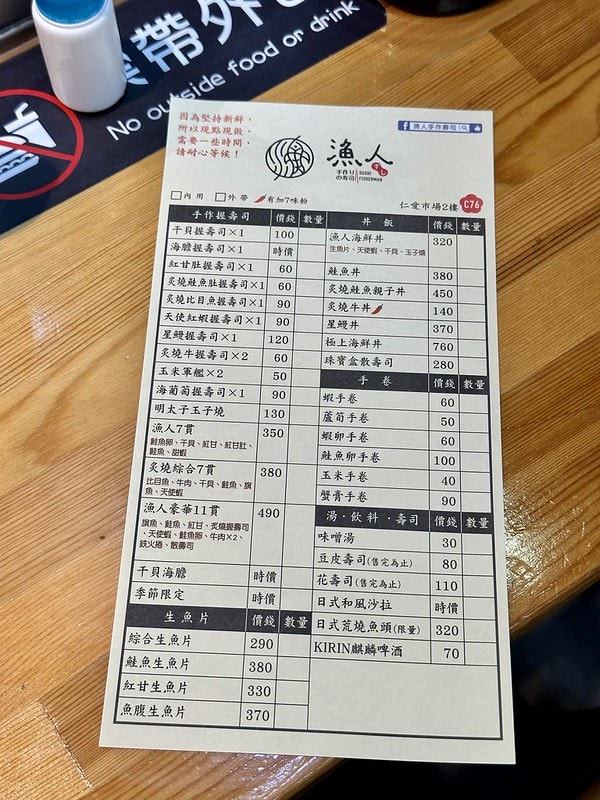 禁帶外
No outside food or drink
因為堅持新鮮，
所以現點現做，
需要一些時間，
請耐心等候！
漁人手作壽司
漁人
すし
手作り
の寿司
SUSHI
FISHERMAN
內用 外帶 有加7味粉
仁愛市場2樓 C76
手作握壽司 價錢 數量
干貝握壽司×1 100
海膽握壽司×1 時價
紅甘肚握壽司×1 60
炙燒鮭魚肚握壽司×1 60
炙燒比目魚握壽司×1 90
天使紅蝦握壽司×1 90
星鰻握壽司×1 120
炙燒牛握壽司×2 60
玉米軍艦×2 50
海葡萄握壽司×1 90
明太子玉子燒 130
漁人7貫 350
鮭魚卵、干貝、紅甘、紅甘肚、
鮭魚、甜蝦
炙燒綜合7貫 380
比目魚、牛肉、干貝、鮭魚、旗
魚、天使蝦
漁人豪華11貫 490
旗魚、鮭魚、紅甘、炙燒握壽司
、天使蝦、鮭魚卵、牛肉×2、
鉄火捲、散壽司
干貝海膽 時價
季節限定 時價
生魚片 價錢 數量
綜合生魚片 290
鮭魚生魚片 380
紅甘生魚片 330
魚腹生魚片 370
丼飯 價錢 數量
漁人海鮮丼 320
生魚片、天使蝦、干貝、玉子燒
鮭魚丼 380
炙燒鮭魚親子丼 450
炙燒牛丼 140
星鰻丼 370
極上海鮮丼 760
珠寶盒散壽司 280
手卷 價錢 數量
蝦手卷 60
蘆筍手卷 50
蝦卵手卷 60
鮭魚卵手卷 100
玉米手卷 40
蟹膏手卷 90
湯．飲料．壽司 價錢 數量
味噌湯 30
豆皮壽司(售完為止) 80
花壽司(售完為止) 110
日式和風沙拉 時價
日式荒燒魚頭(限量) 320
KIRIN麒麟啤酒 70